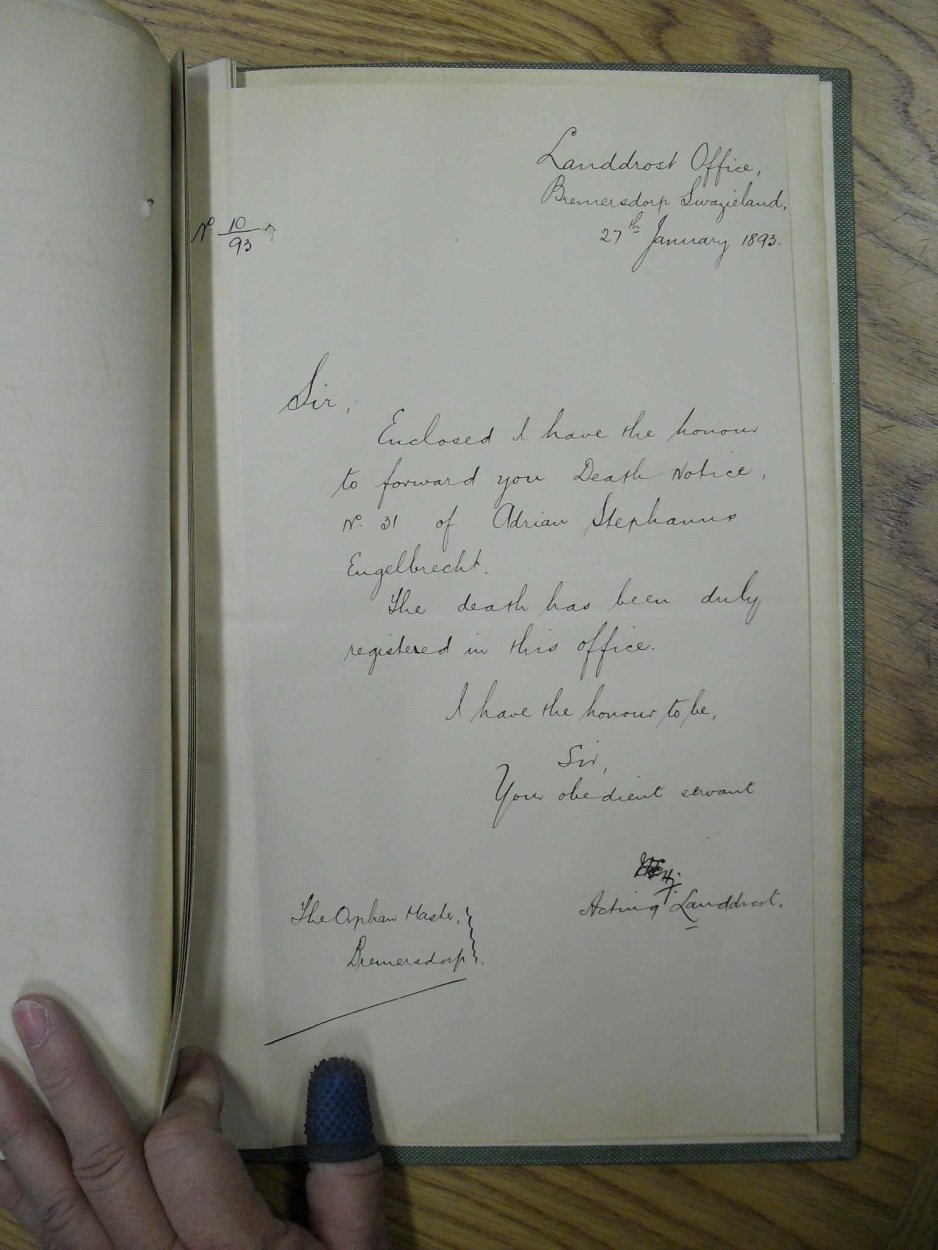 Landdrost Office,
Bremersdorp Swazieland,
27th January 1893.
No. 10/93
Sir,
Enclosed I have the honour
to forward you Death Notice,
No. 31 of Adrian Stephanus
Engelbrecht.
The death has been duly
registered in this office.
I have the honour to be,
Sir,
Your obedient servant
Acting Landdrost.
The Orphan Master,
Bremersdorp.